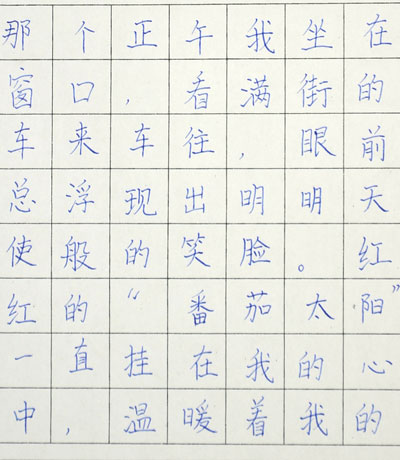 那个正午我坐在
窗口，看满街的
车来车往，眼前
总浮现出明明天
使般的笑脸。红
红的“番茄太阳”
一直挂在我的心
中，温暖着我的